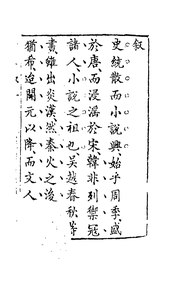 叙
史統散而小說興始乎周季盛
於唐而浸淫於宋韓非列禦冠
諸人小說之祖也吳越春秋等
書雖出炎漢然秦火之後
猶希迨開元以降而文人